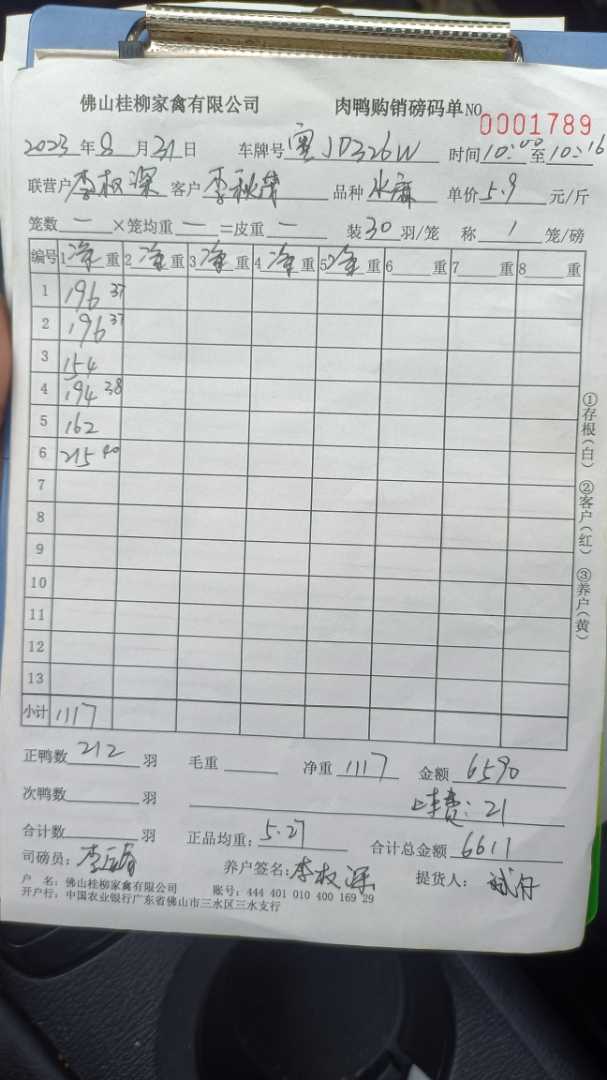 佛山桂柳家禽有限公司 肉鸭购销磅码单 NO 0001789
2023年8月31日 车牌号 粤JD326W 时间10:00至10:16
联营户 李权深 客户 李秋茂 品种 水麻 单价5.9元/斤
笼数 一 ×笼均重 一 =皮重 一 装30羽/笼 称1笼/磅
编号 1净重 2净重 3净重 4净重 5净重 6重 7重 8重
1 196 37
2 196 37
3 154
4 194 38
5 162
6 215 40
7
8
9
10
11
12
13
小计 1117
正鸭数 212 羽 毛重 净重 1117 金额 6590
次鸭数 羽 上车费:21
合计数 羽 正品均重:5.27 合计总金额 6611
司磅员: 养户签名:李权深 提货人:
户 名:佛山桂柳家禽有限公司 账号:444 401 010 400 169 29
开户行:中国农业银行广东省佛山市三水区三水支行
①存根(白) ②客户(红) ③养户(黄)